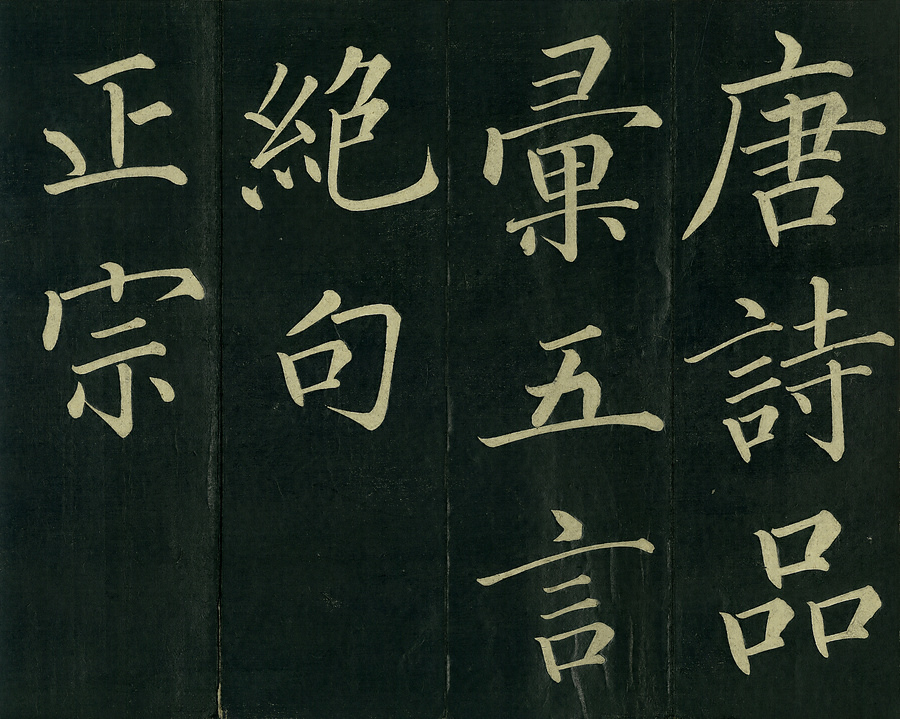 唐詩品
彙五言
絶句
正宗